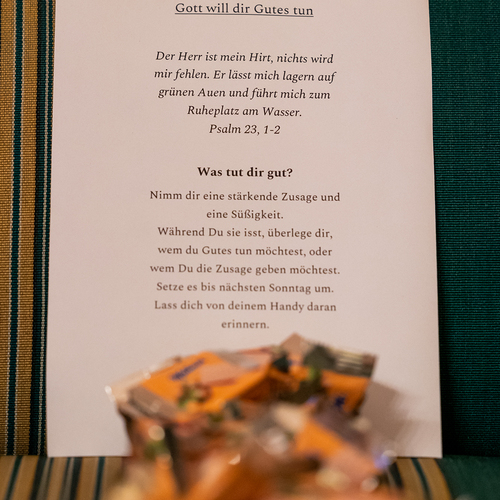 Gott will dir Gutes tun
Der Herr ist mein Hirt, nichts wird
mir fehlen. Er lässt mich lagern auf
grünen Auen und führt mich zum
Ruheplatz am Wasser.
Psalm 23, 1-2
Was tut dir gut?
Nimm dir eine stärkende Zusage und
eine Süßigkeit.
Während Du sie isst, überlege dir,
wem du Gutes tun möchtest, oder
wem Du die Zusage geben möchtest.
Setze es bis nächsten Sonntag um.
Lass dich von deinem Handy daran
erinnern.